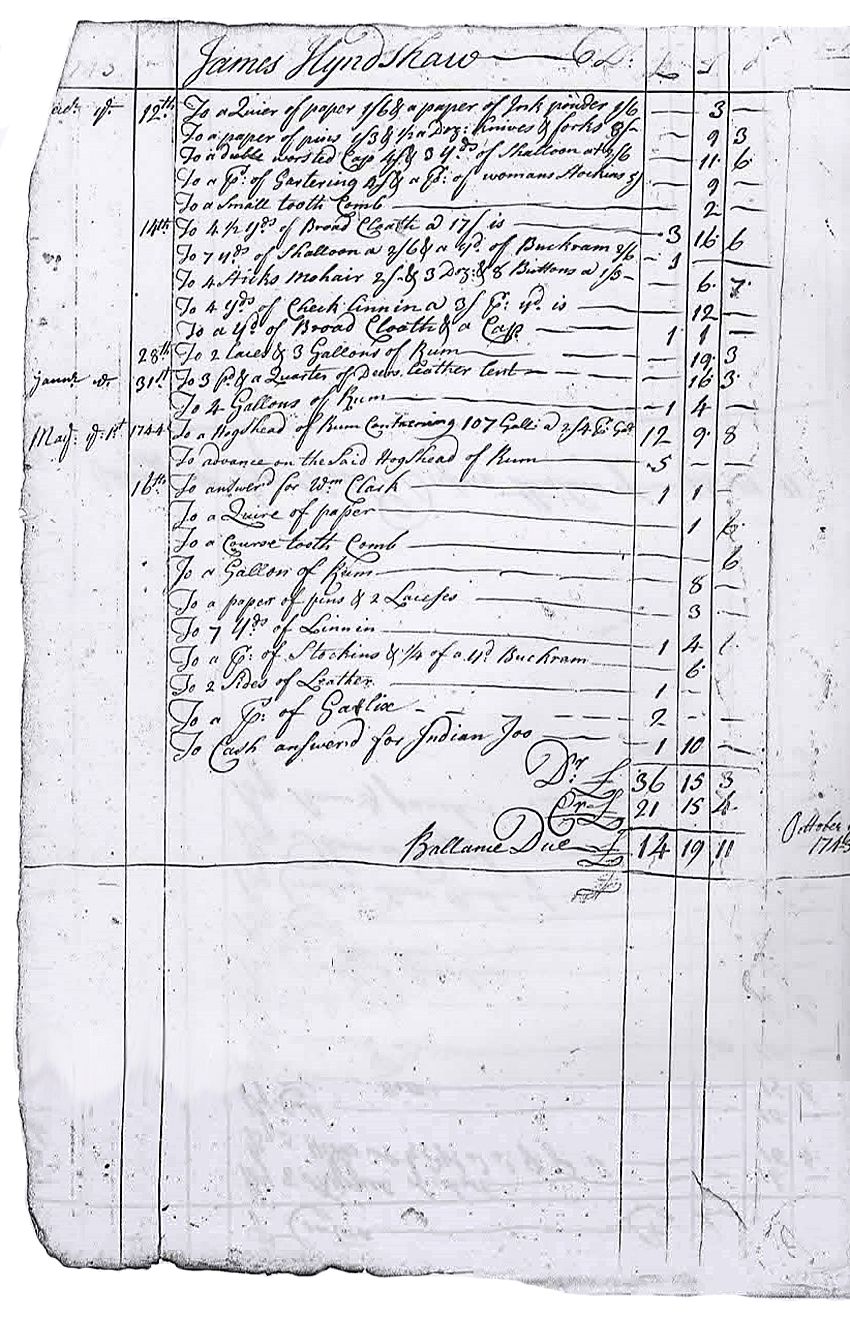 James Hyndshaw Dr. £ S d
12th To a Quier of paper 1/6 & a paper of Ink pouder 1/6 — 3 —
To a paper of pins 1/3 & ½ a Doz: Knives & forks 8/- — 9 3
To a duble worsted Cap 4/ & 3 yds of Shalloon at 2/6 — 11 6
To a Pr: of Gartering 4/ & a Pr: of womans Stockins 5/ — 9 —
To a Small tooth Comb — 2 —
14th To 4 ½ yds of Broad Cloath a 17/ is 3 16 6
To 7 yds of Shalloon a 2/6 & a yd. of Buckram 2/6 1 —
To 4 Sticks Mohair 2/- & 3 Doz: & 8 Buttons a 1/3 — 6 7
To 4 yds of Check linnin a 3/ Pr: yd. is — 12 —
To a yd of Broad Cloath & a Cap 1 1 —
28th To 2 laces & 3 Gallons of Rum — 19 3
31st To 3 p: & a Quarter of Deers leather lent — 16 3
To 4 Gallons of Rum 1 4 —
May ye 1st 1744 To a Hogshead of Rum Containing 107 Gall: a 2/4 Pr Gall 12 9 8
To advance on the Said Hogshead of Rum 5 — —
16th To answerd for Wm Clark 1 1 —
To a Quire of paper 1 6
To a Course tooth Comb 6
To a Gallon of Rum 8 —
To a paper of pins & 2 Laceses 3 —
To 7 Yds of Linnin 1 4
To a Pr: of Stockins & ¼ of a yd Buckram 6
To 2 Sides of Leather 1 —
To a Ps: of Garlix 2 — —
To Cash answerd for Indian Joo 1 10 —
Dr £ 36 15 3
Cr £ 21 15 4
Ballance Due £ 14 19 11
October